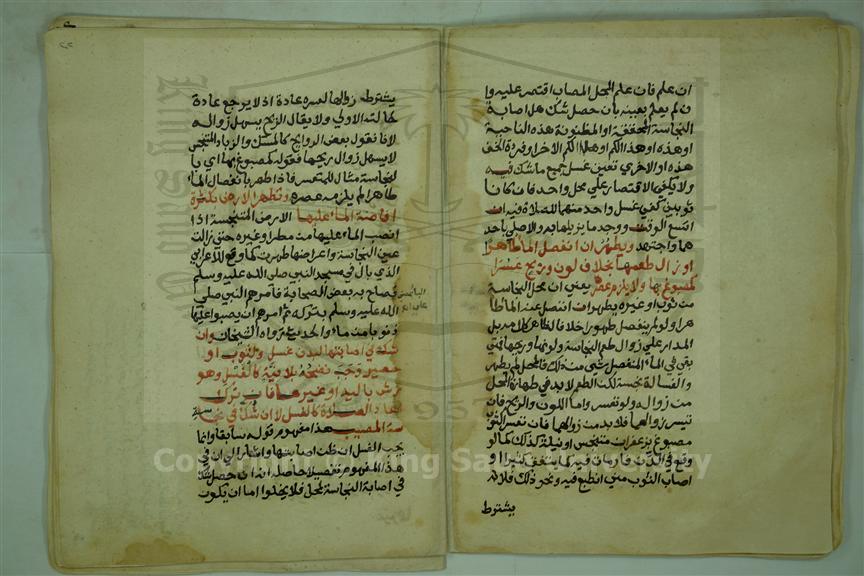 ان علم فان علم المحل المصاب اقتصر عليه وا
ن لم يعلم بعينه بان حصل شك هل اصابة
النجاسة المحققة او المظنونة هذه الناحية
او هذه او هذا الكم او هذا الكم الاخر او فردة الخف
هذه او الاخري تعين غسل جميع ما شك فيه
ولا يكفي الاقتصار علي محل واحد فان كانا
ثوبين كفي غسل واحد منهما للصلاة فيه ان
اتسع الوقت ووجد ما يزيلها به والا صلي باحد
هما واجتهد ويطهر ان انفصل الماء طاهرا
اوزال طعمها بخلاف لون وريح عسرا
كمصبوغ بها ولا يلزم عصر يعني ان محل النجاسة
من ثوب او غيره يطهر ان انفصل عنه الماء طا
هرا ولو لم ينفصل طهورا خلافا لظاهر كلامه بل
المدار علي زوال طعم النجاسة ولونها وريحها فمتي
بقي في الماء المنفصل شي من ذلك فالمحل لم يطهر
والغسالة نجسة لكن الطعم لا بد في طهارة المحل
من زواله ولو تعسر واما اللون والريح فان
تيسر زوالهما فلا بد من زوالهما فان تعسر كثوب
مصبوغ بزعفران متنجس او نيلة كذلك كما لو
وقع في الدن فار مات فيه
اصاب الثوب مني انطبع فيه ونحو ذلك فلا
يشترط
يشترط زوالها لعسره عادة اذ لا يرجع عادة
لحالته الاولي ولا يقال الريح يسهل زواله
لانا نقول بعض الروايح كالمسك والزباد المتنجس
لا يسهل زوال ريحها فقوله كمصبوغ بها اي با
لنجاسة مثال للمتعسر فاذا طهر بانفصال الماء
طاهرا لم يلزمه عصره وتطهر الارض بكثرة
افاضة الماء عليها الارض المتنجسة اذا
انصب الماء عليها من مطر او غيره حتي زالت
عين النجاسة واعراضها طهرت كما وقع للاعرابي
الذي بال في مسجد النبي صلي الله عليه وسلم
فصاح به بعض الصحابة فامرهم النبي صلي
الله عليه وسلم بتركه ثم امرهم ان يصبوا عليها
ذنوبا من ماء والحديث رواه الشيخان وان
شك في اصابتها لبدن غسل ولثوب او
حصير وجب نضحه بلا نية كالغسل وهو
رش باليد او غيرها فان ترك
اعاد الصلاة كالغسل لا ان شك في نجا
سة المصيب هذا مفهوم قوله سابقا وانما
يجب الغسل ان ظن اصابتها واشار الي ان في
هذا المفهوم تفصيلا حاصله انه ان حصل شك
في اصابة النجاسة لمحل فلا يخلوا اما ان يكون